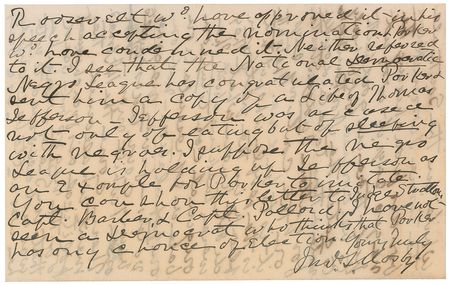 Roosevelt wd have approved it in his
speech accepting the nomination & Parker
wd have condemned it. Neither referred
to it. I see that the National Democratic
Negro League has congratulated Parker &
sent him a copy of a Life of Thomas
Jefferson. Jefferson was accused
not only of eating but of sleeping
with negroes. I suppose the negro
League is holding up Jefferson as
an example for Parker to imitate.
You can show this letter to Judge
Capt. Barker & Capt. Pollard. I have not
seen a Democrat who thinks that Parker
has any chance of election. Yours Truly
Jno. S. Mosby